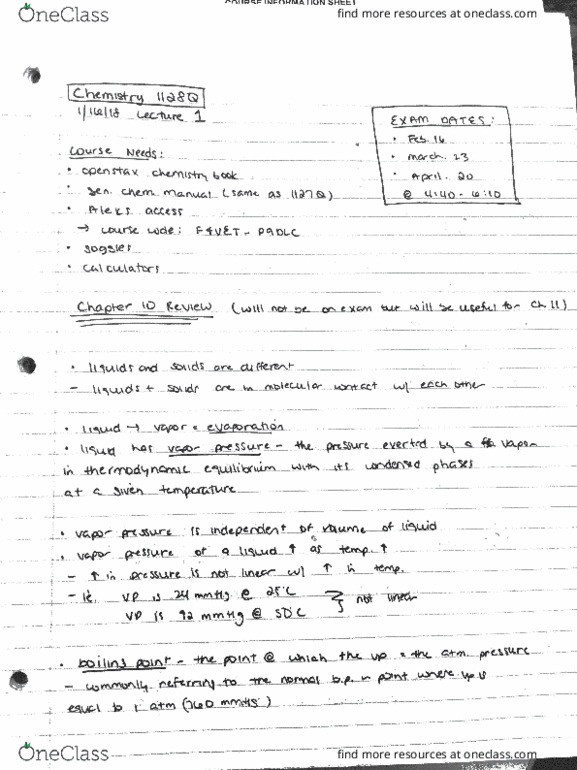 COURSE INFORMATION SHEET
OneClass
find more resources at oneclass.com
Chemistry 1128Q
1/16/18 Lecture 1
EXAM DATES:
• Feb. 16
• march. 23
• April. 20
@ 4:40 - 6:10
Course Needs:
• openstax chemistry book
• Gen. chem manual (same as 1127Q)
• Aleks access
→ course code: F4VET - P9DLC
• goggles
• calculators
Chapter 10 Review (will not be on exam but will be useful for Ch 11)
• liquids and solids are different
- liquids + solids are in molecular contact w/ each other
• liquid → vapor = evaporation
• liquid has vapor pressure - the pressure exerted by a vapor
in thermodynamic equilibrium with its condensed phases
at a given temperature
• vapor pressure is independent of volume of liquid
• vapor pressure of a liquid ↑ as temp. ↑
- ↑ in pressure is not linear w/ ↑ in temp.
- ie. VP is 24 mmHg @ 25°C
VP is 92 mmHg @ 50°C
} not linear
• boiling point - the point @ which the vp = the atm. pressure
- commonly referring to the normal b.p. → point where vp is
equal to 1 atm (760 mmHg)
OneClass
find more resources at oneclass.com